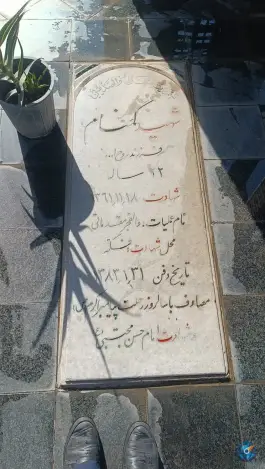 شهید گمنام
فرزند روح ا...
۲۲ ساله
شهادت: ۱۳۶۱,۱۱,۱۸
نام عملیات: والفجر مقدماتی
محل شهادت: فکه
تاریخ دفن: ۱۳۸۳,۱,۳۱
مصادف با سالروز رحلت پیامبر اکرم (ص)
و شهادت امام حسن مجتبی (ع)